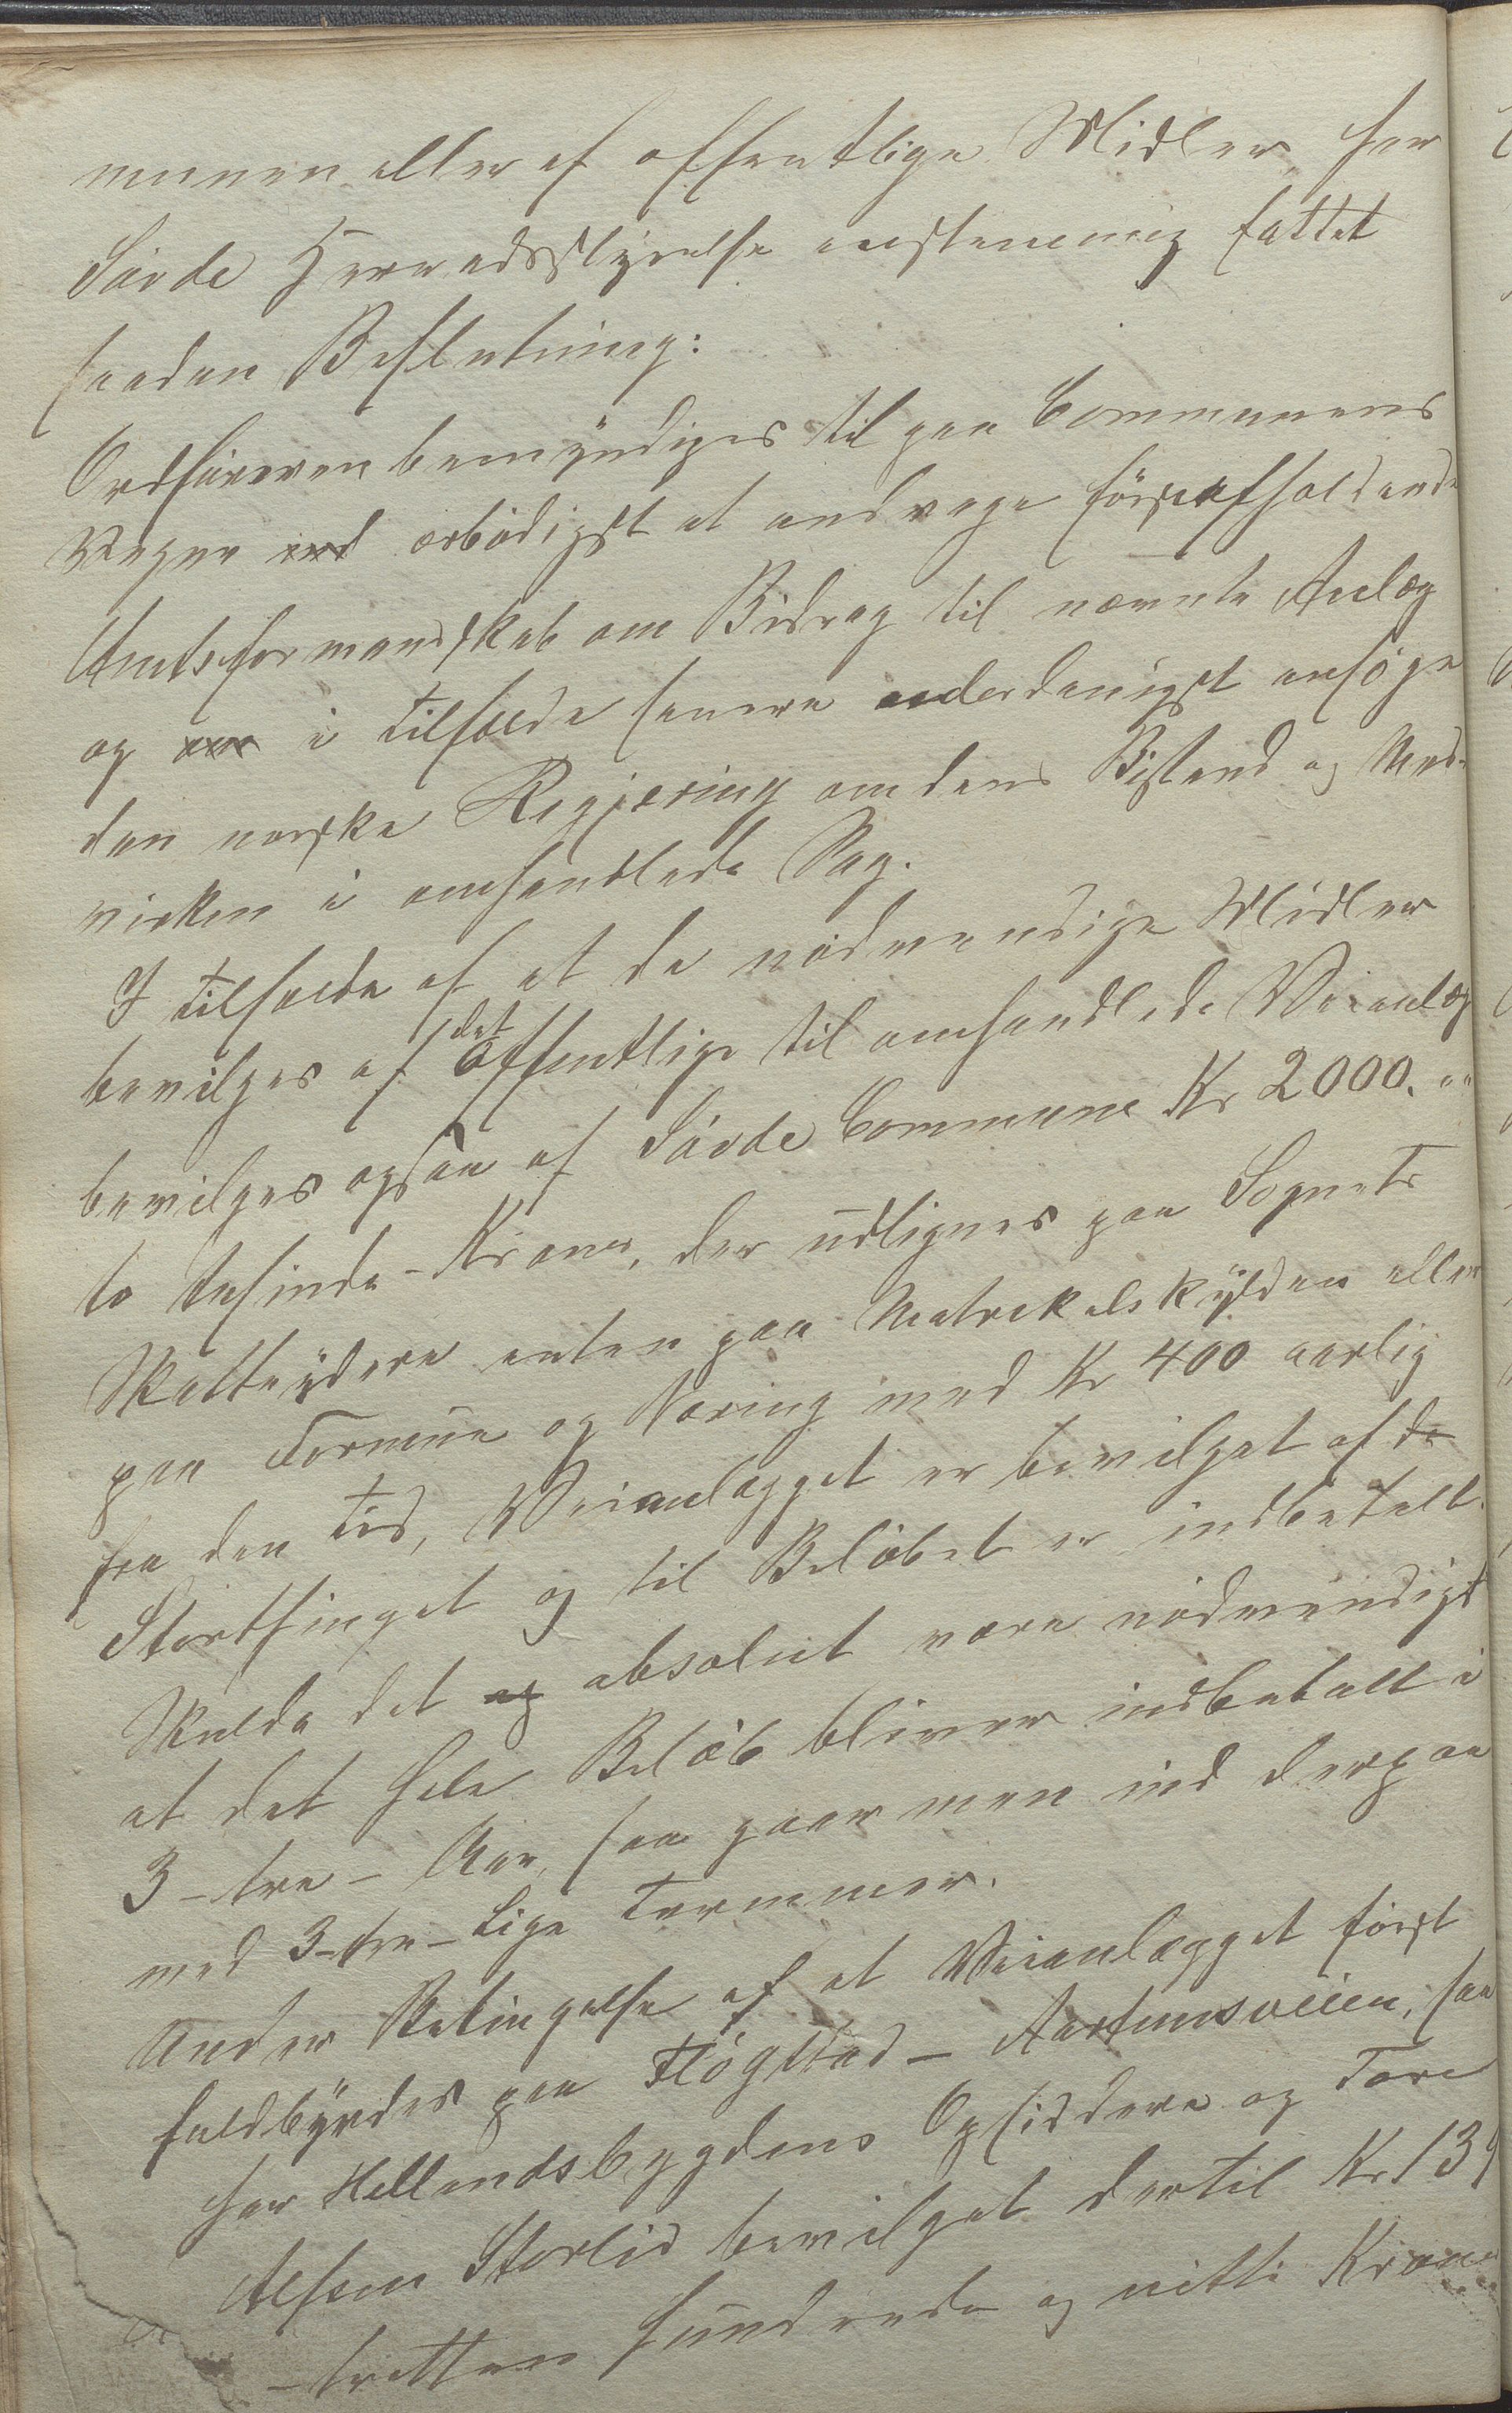 munen eller af offentlige Midler, har
Søvde Herredsstyrelse enstemmig fattet
saadan Beslutning:
Ordføreren bemyndiges til paa Communens
Vegne ærbødigst at andrage førstafholdende
Amtsformandskab om Bidrag til nævnte Anlæg
og i tilfælde senere underdanigst ansøge
den norske Regjering om dens Bistand og Med-
virken i omhandlede Sag.
I tilfælde af at de nødvendige Midler
bevilges af det Offentlige til omhandlede Veianlæg
bevilges ogsaa af Søvde Commune Kr 2000. "
to tusinde - Kroner, der udlignes paa Sognets
Skatteydere enten paa Matrikelskylden eller
paa Formue og Næring med Kr 400 aarlig
fra den tid, Veianlægget er bevilget af
Storthinget og til Beløbet er indbetalt.
Skulde det absolut være nødvendigt
at det hele Beløb bliver indbetalt i
3 - tre - Aar, saa gaar man ind derpaa
med 3 - tre - lige Terminer.
Under Betingelse af at Veianlægget først
fuldbyrdes paa Fløgstad - Aartunsveien, har
har Hellandsbygdens Opsiddere og Tore
Storlid bevilget dertil Kr 139
- tretten hundrede og nitti Kroner